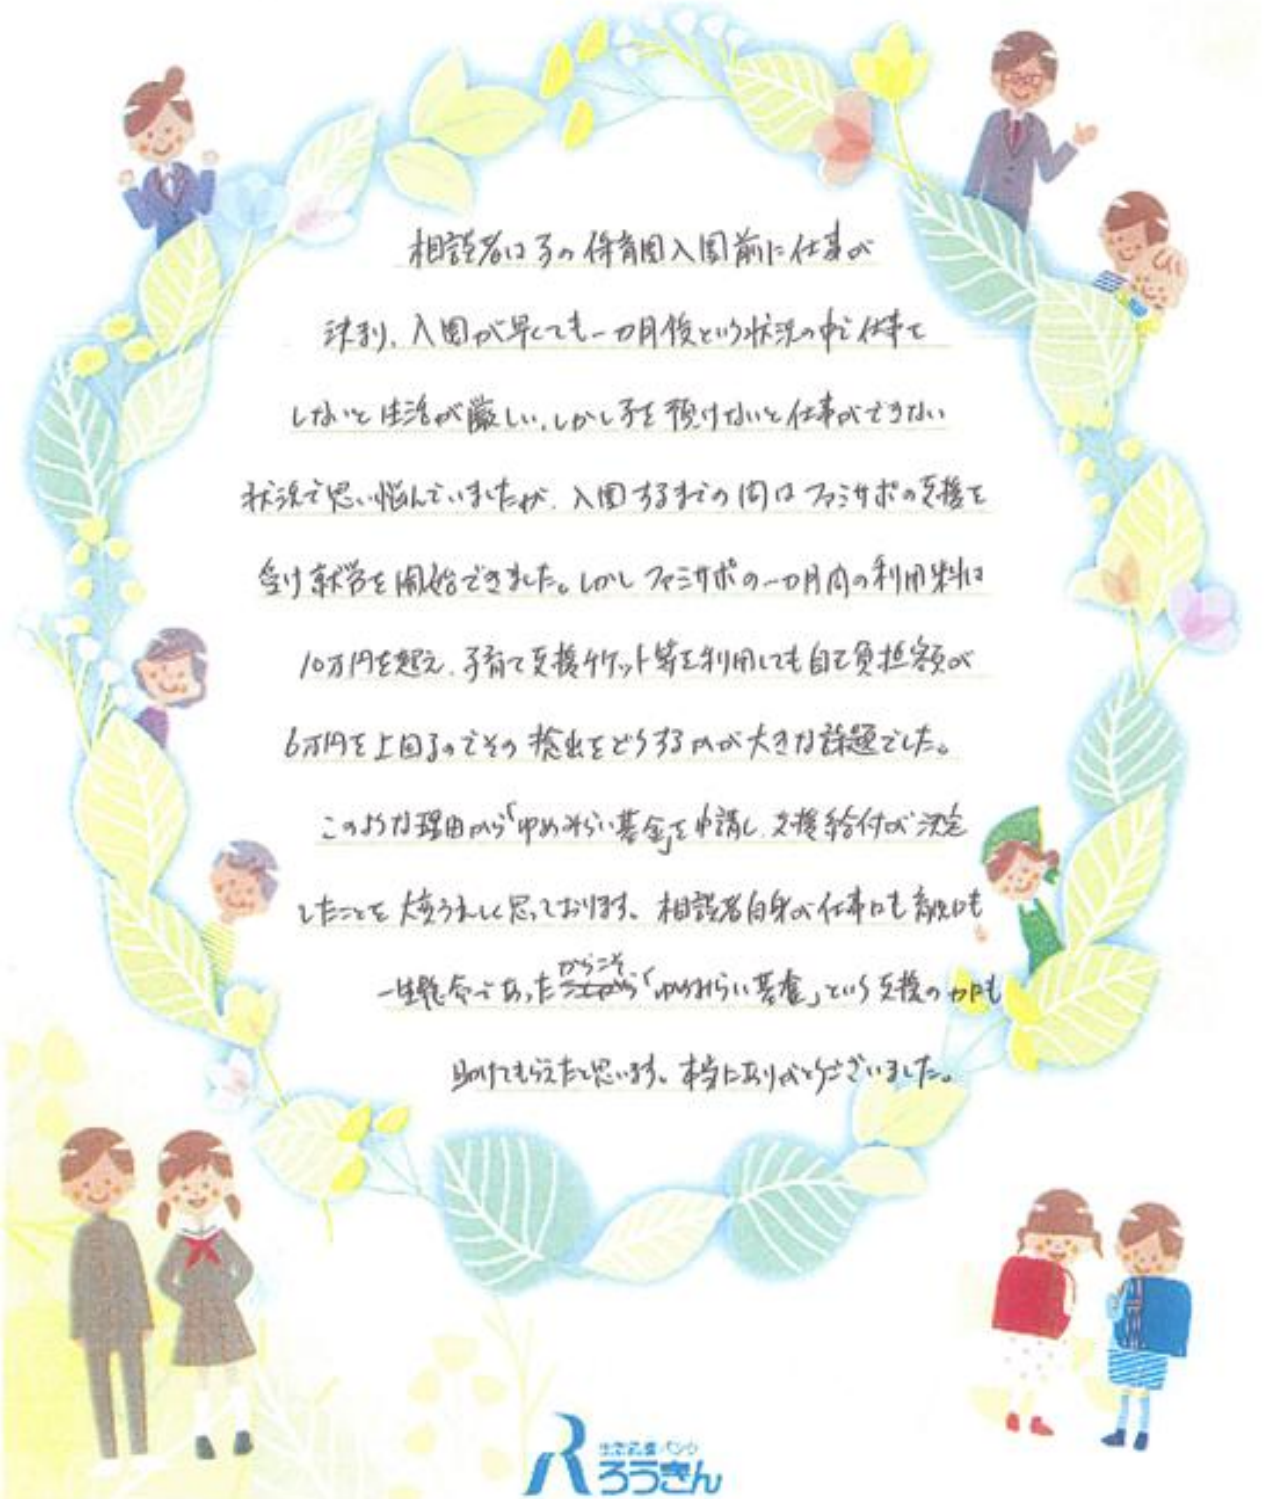 相談者は子の保育園入園前に仕事が
決まり、入園が早くても一カ月後という状況の中で仕事を
しないと生活が厳しい、しかし子を預けないと仕事ができない
状況で思い悩んでいましたが、入園するまでの間はファミサポの支援を
受け就労を開始できました。しかしファミサポの一カ月間の利用料は
10万円を超え、子育て支援チケット等を利用しても自己負担額が
6万円を上回るのでその捻出をどうするかが大きな課題でした。
このような理由から「ゆめみらい基金」を申請し、支援給付が決定
したことを大変うれしく思っております。相談者自身が仕事にも育児にも
からこそ
一生懸命であった「ゆめみらい基金」という支援の力にも
助けてもらえたと思います。本当にありがとうございました。
生活応援バンク
ろうきん